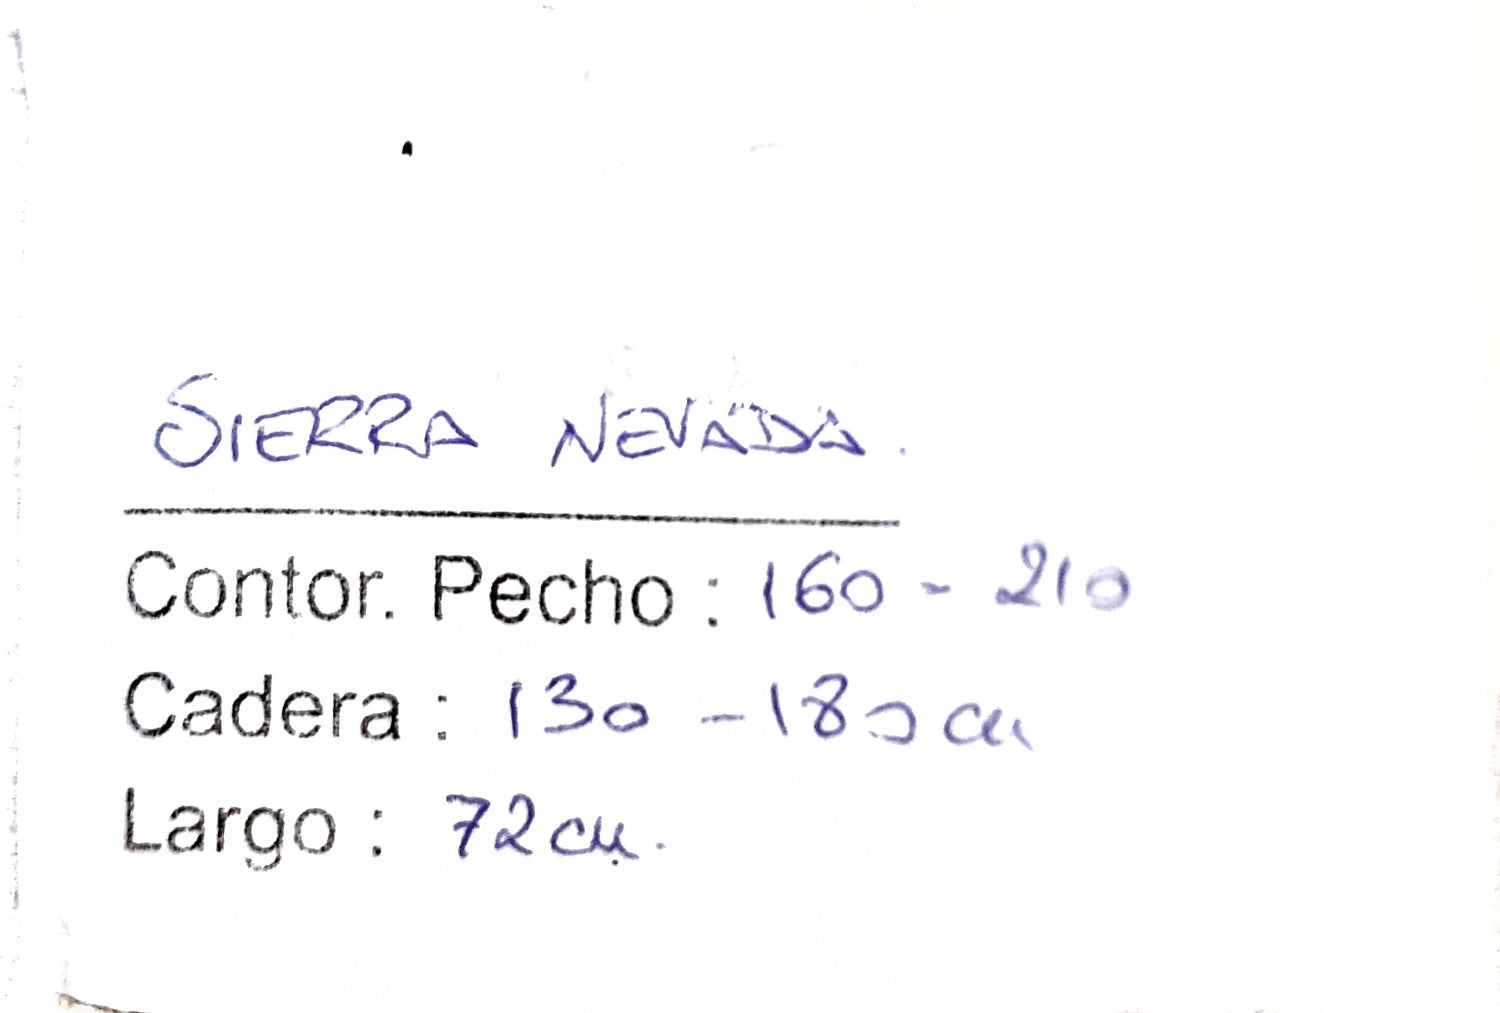 SIERRA NEVADA.
Contor. Pecho : 160 - 210
Cadera : 130 - 180 cm
Largo : 72 cm.